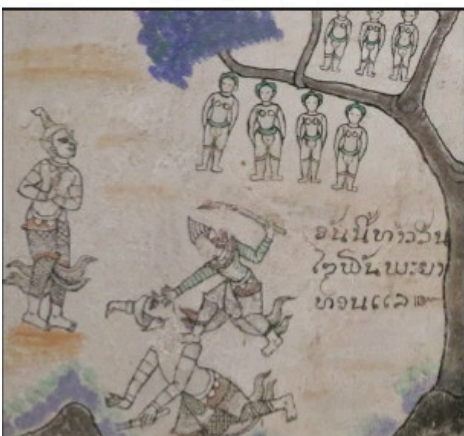 อันนี้ท้าวสิน
ไซฟันพะยา
ทอนแล๛